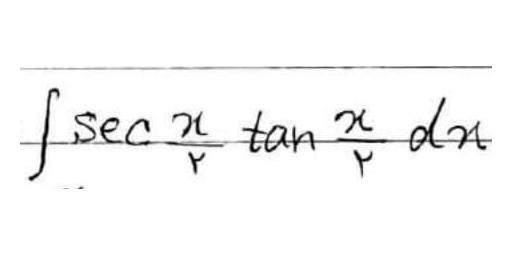 ∫ sec x/۲ tan x/۲ dx